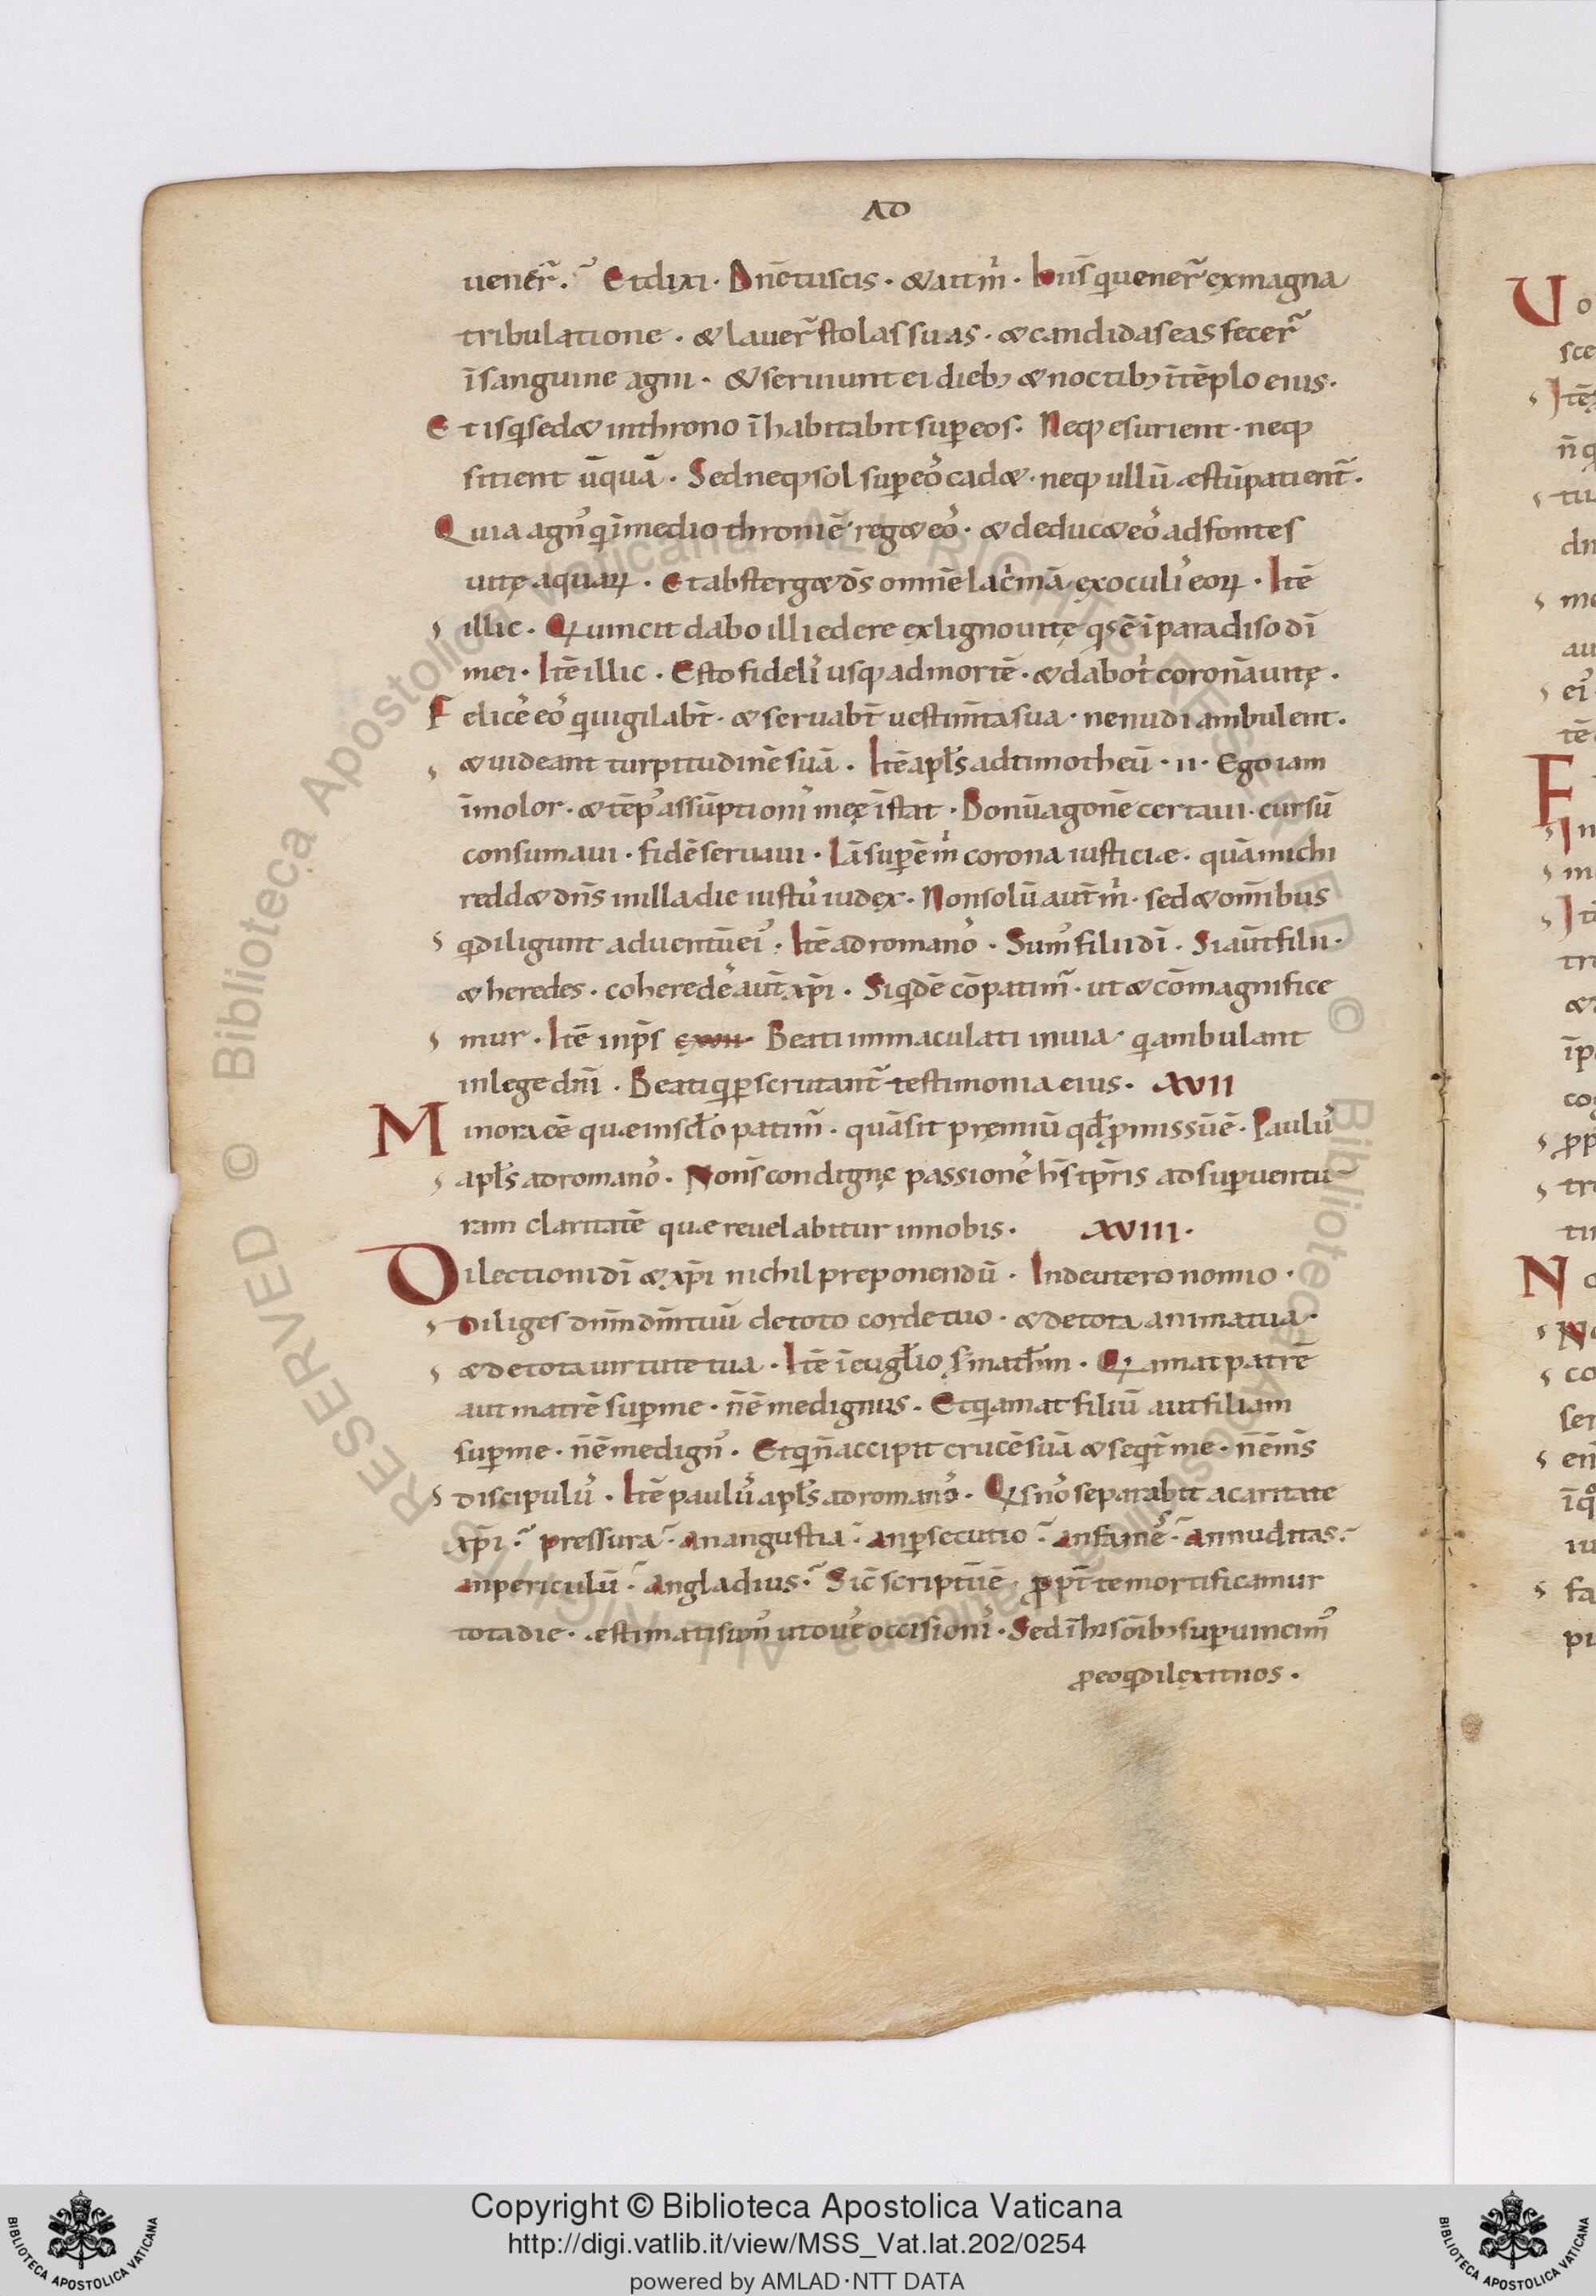 AD
uener̄. Et dixi. Dn̄e tu scis. & ait m̄. Hiis qui uener̄ ex magna
tribulatione. & lauer̄ stolas suas. & candidas eas fecer̄
ī sanguine agni. & seruiunt ei dieb; & noctib; ī tēplo eius.
Et is q̄ sed& in throno īhabitabit super eos. Neq; esurient. neq;
sitient ūquā. Sed neq; sol super eos cad&. neq; ullū æstū patient̄.
Quia agn' qui ī medio throni ē reg& eos. & deduc& eos ad fontes
uitę aquaꝝ. Et absterg& ds̄ omnē lac̄mā ex oculis eoꝝ. Itē
illic. Qui uincit dabo illi edere ex ligno uitę qs̄ ē ī paradiso dī
mei. Itē illic. Esto fidelis usq; ad mortē. & dabo t̄ coronā uitę.
Felices eos qui uigilabt̄. & seruabt̄ uestim̄ta sua. ne nudi ambulent.
& uideant turpitudinē suā. Itē apl̄s ad timotheū. ii. Ego iam
īmolor. & tēp' assūptionis meę īstat. Bonū agonē certaui. cursū
consumaui. fidē seruaui. Iā superē m̄ corona iusticiæ. quā michi
redd& dn̄s in illa die iustus iudex. Non solū aut̄ m̄. sed & om̄nibus
qui diligunt aduentū ei'. Itē ad romanos. Sum' filii dī. Si aut̄ filii.
& heredes. coheredes aut̄ xp̄i. Siqdē cōpatim̄. ut & cōmagnifice
mur. Itē in ps̄ cxvii Beati inmaculati in uia qui ambulant
in lege dn̄i. Beati qui perscrutant̄ testimonia eius. XVII
Minora eē quæ in scl̄o patim̄. quā sit pręmiū qd̄ p̄missū ē. Paulus
apl̄s ad romanos. Non s̄ condignę passiones hs̄ tp̄ris ad superuentu
ram claritatē quæ reuelabitur in nobis. XVIII.
Dilectioni dī & xp̄i nichil preponendū. In deuteronomio.
Diliges dn̄m dm̄ tuū de toto corde tuo. & de tota anima tua.
& de tota uirtute tua. Itē ī eugl̄io s̄ mathm̄. Qui amat patrē
aut matrē super me. n̄ ē me dignus. Et qui amat filiū aut filiam
super me. n̄ ē me dign'. Et qui n̄ accipit crucē suā & seqt̄ me. n̄ ē m̄s
discipulus. Itē paulus apl̄s ad romanos. Qis nos separabit a caritate
xp̄i. pressura. an angustia. an persecutio. an fames. an nuditas.
an periculū. an gladius. Sic̄ scriptū ē. p̄pt̄ te mortificamur
tota die. æstimati sum' ut oues occisionis. Sed ī his oīb; superuincim'
p̄ eo qui dilexit nos.
Copyright © Biblioteca Apostolica Vaticana
http://digi.vatlib.it/view/MSS_Vat.lat.202/0254
powered by AMLAD·NTT DATA